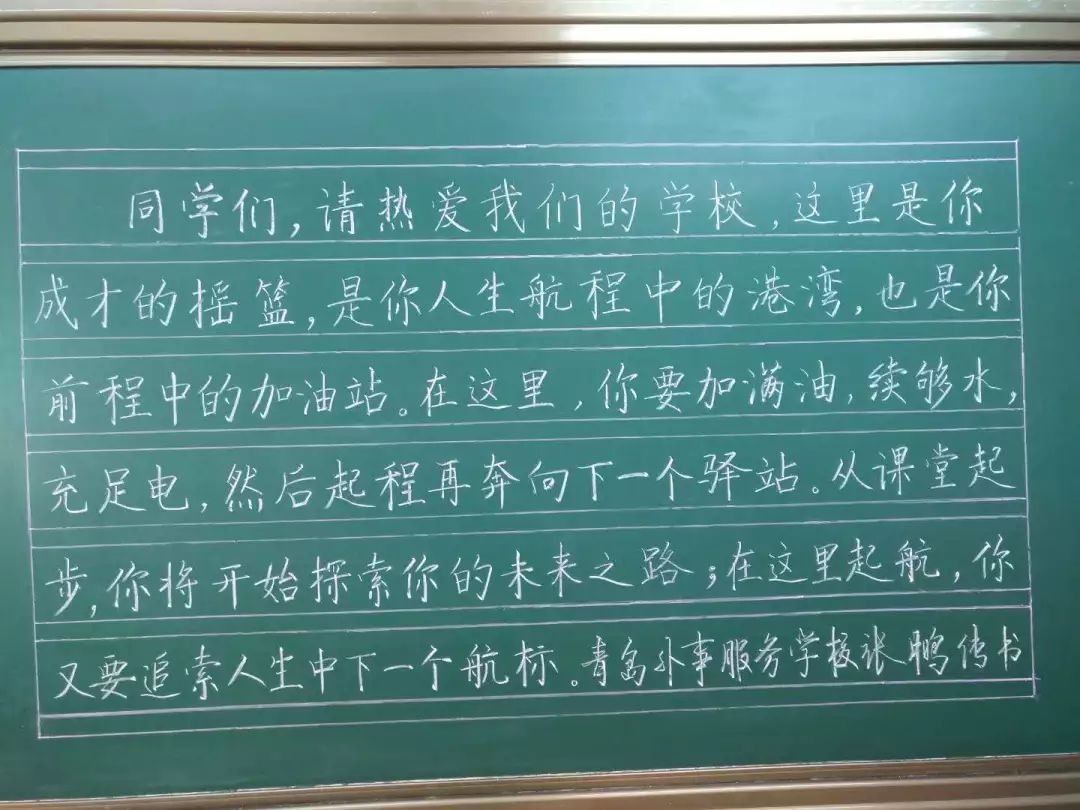 同学们,请热爱我们的学校,这里是你
成才的摇篮,是你人生航程中的港湾,也是你
前程中的加油站。在这里,你要加满油,续够水,
充足电,然后起程再奔向下一个驿站。从课堂起
步,你将开始探索你的未来之路;在这里起航,你
又要追索人生中下一个航标。青岛外事服务学校张鹏传书